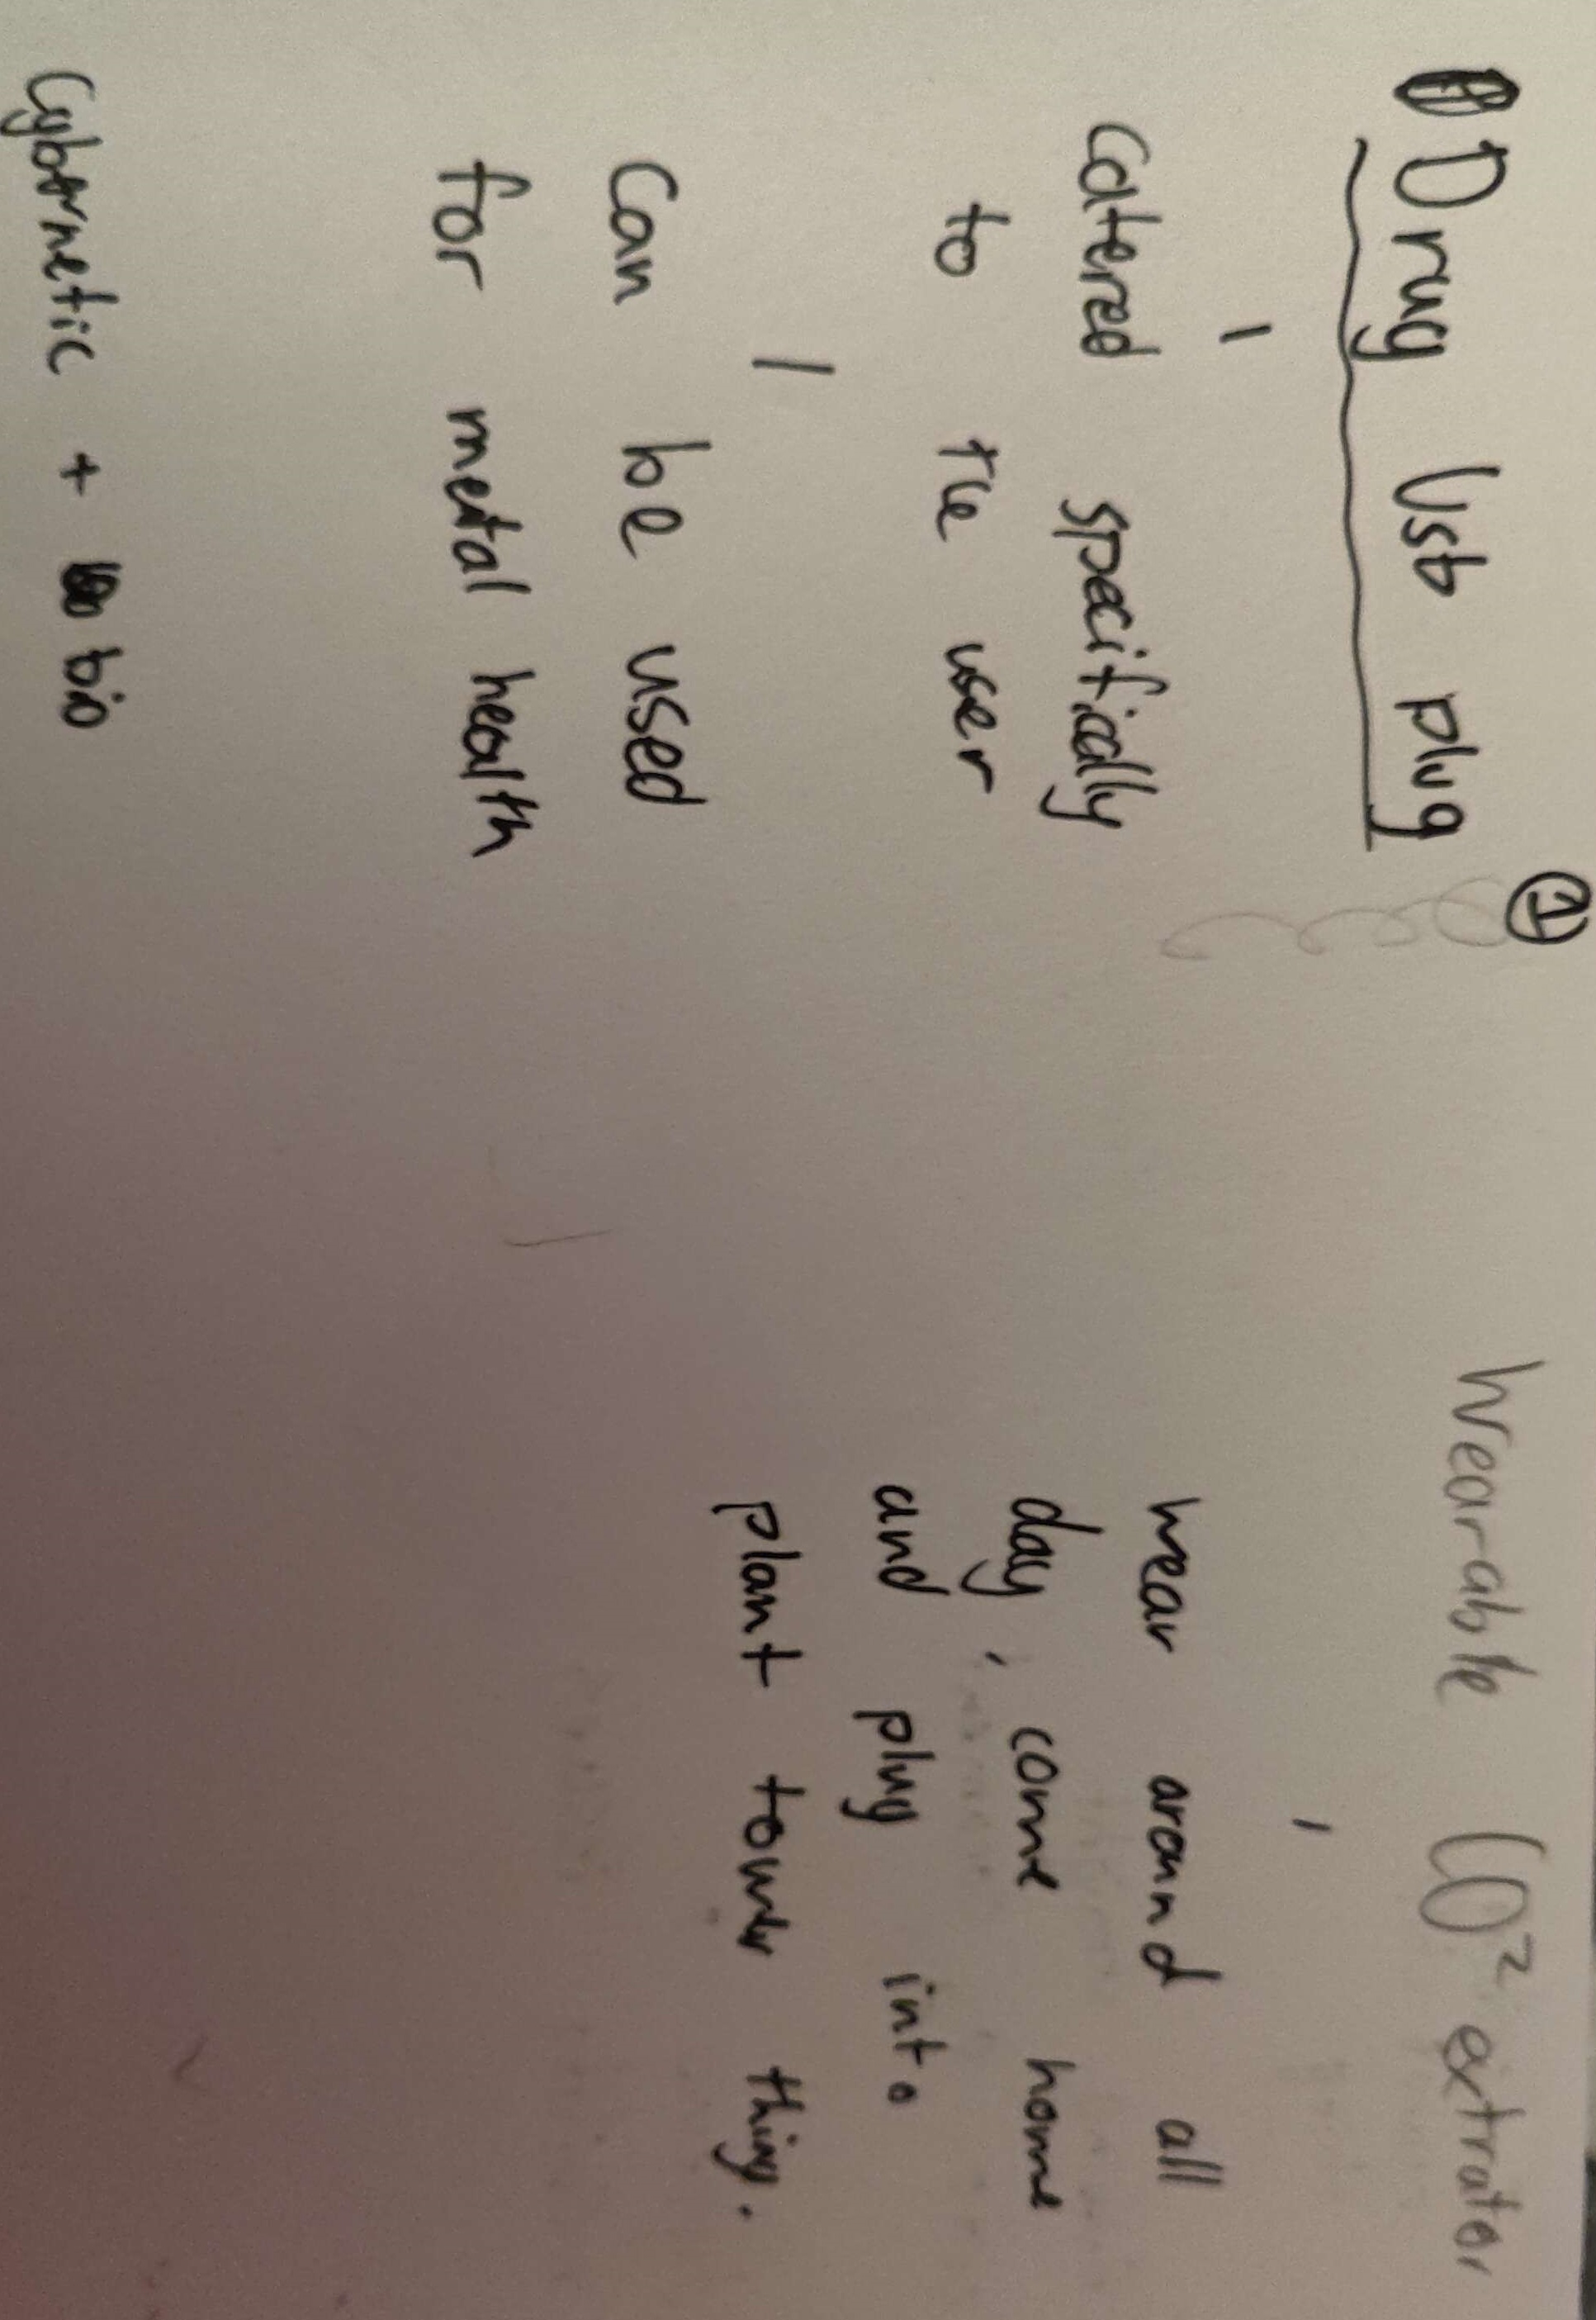 ①
Drug Usb plug
Catered specifically
to the user
Can be used
for mental health
Cybernetic + bio
Wearable CO² extrator
wear around all
day, come home
and plug into
plant tower thing.